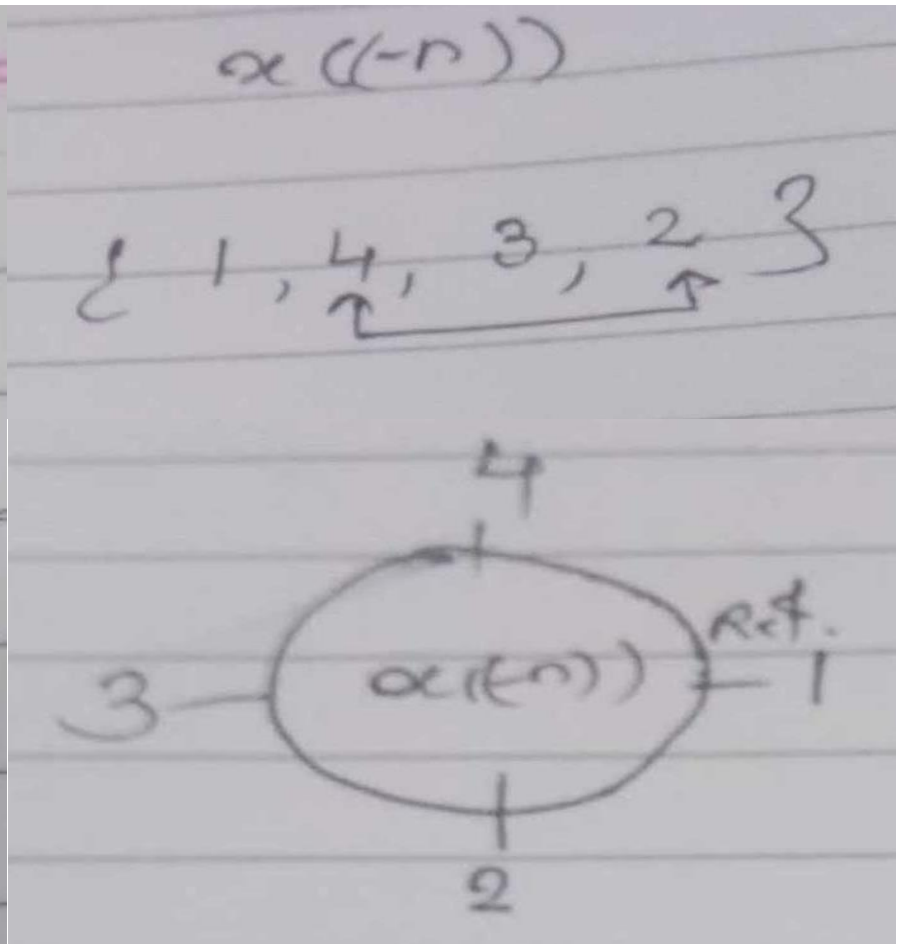 x((-n))
{ 1, 4, 3, 2 }
4
Ref.
3 x((-n)) 1
2